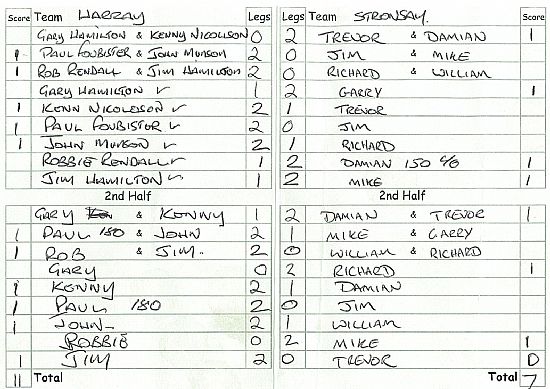 Score Team HARRAY Legs Legs Team STRONSAY. Score
GARY HAMILTON & KENNY NICOLSON 0 2 TREVOR & DAMIAN 1
1 PAUL FOUBISTER & JOHN MUNSON 2 0 JIM & MIKE
1 ROB RENDALL & JIM HAMILTON 2 0 RICHARD & WILLIAM
GARY HAMILTON 1 2 GARRY 1
1 KENN NICOLOSON 2 1 TREVOR
1 PAUL FOUBISTER 2 0 JIM
1 JOHN MUNSON 2 1 RICHARD
ROBBIE RENDALL 1 2 DAMIAN 150 C/O 1
JIM HAMILTON 1 2 MIKE 1
2nd Half 2nd Half
GARY & KENNY 1 2 DAMIAN & TREVOR 1
1 PAUL 180 & JOHN 2 1 MIKE & GARRY
1 ROB & JIM. 2 0 WILLIAM & RICHARD
GARY 0 2 RICHARD 1
1 KENNY 2 1 DAMIAN
1 PAUL 180 2 0 JIM
1 JOHN 2 1 WILLIAM
ROBBIE 0 2 MIKE 1
1 JIM 2 0 TREVOR 0
11 Total Total 7